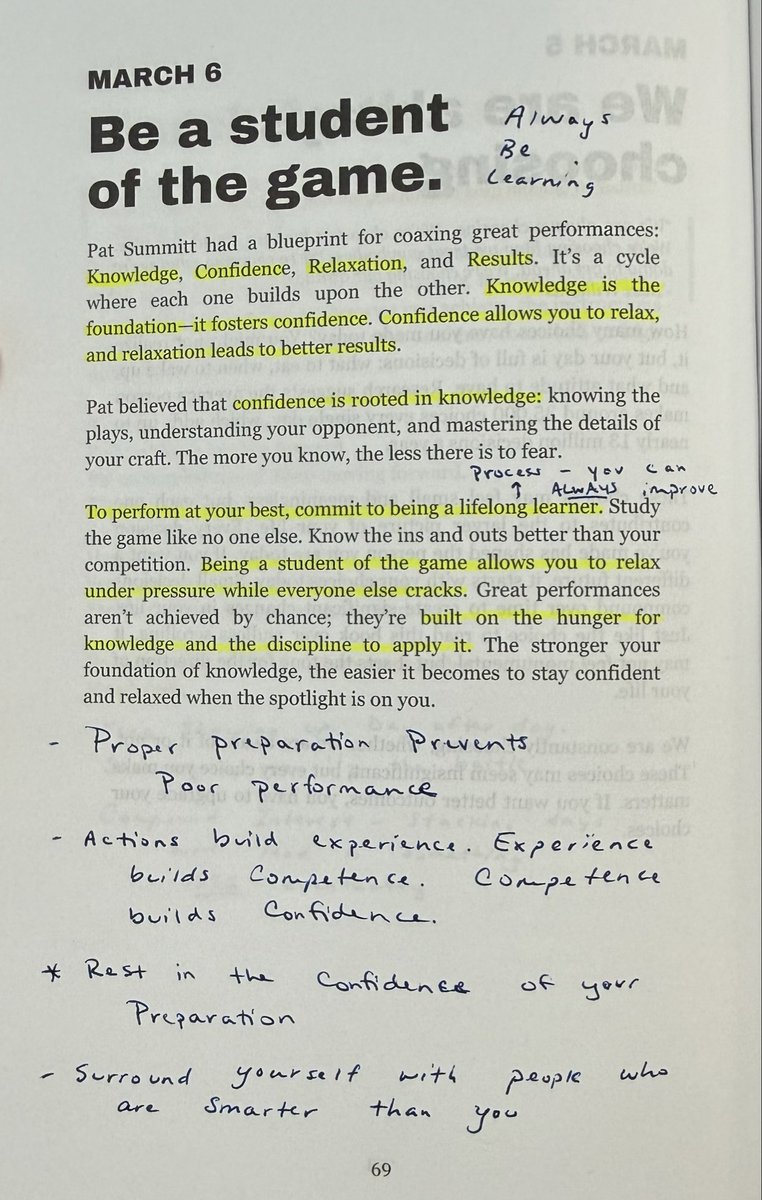 MARCH 6
Be a student
of the game.
Always
Be
Learning
Pat Summitt had a blueprint for coaxing great performances:
Knowledge, Confidence, Relaxation, and Results. It's a cycle
where each one builds upon the other. Knowledge is the
foundation—it fosters confidence. Confidence allows you to relax,
and relaxation leads to better results.
Pat believed that confidence is rooted in knowledge: knowing the
plays, understanding your opponent, and mastering the details of
your craft. The more you know, the less there is to fear.
Process - you can
↑ ALWAYS improve
To perform at your best, commit to being a lifelong learner. Study
the game like no one else. Know the ins and outs better than your
competition. Being a student of the game allows you to relax
under pressure while everyone else cracks. Great performances
aren't achieved by chance; they're built on the hunger for
knowledge and the discipline to apply it. The stronger your
foundation of knowledge, the easier it becomes to stay confident
and relaxed when the spotlight is on you.
- Proper preparation Prevents
Poor performance
- Actions build experience. Experience
builds Competence. Competence
builds Confidence.
* Rest in the Confidence of your
Preparation
- Surround yourself with people who
are smarter than you
69